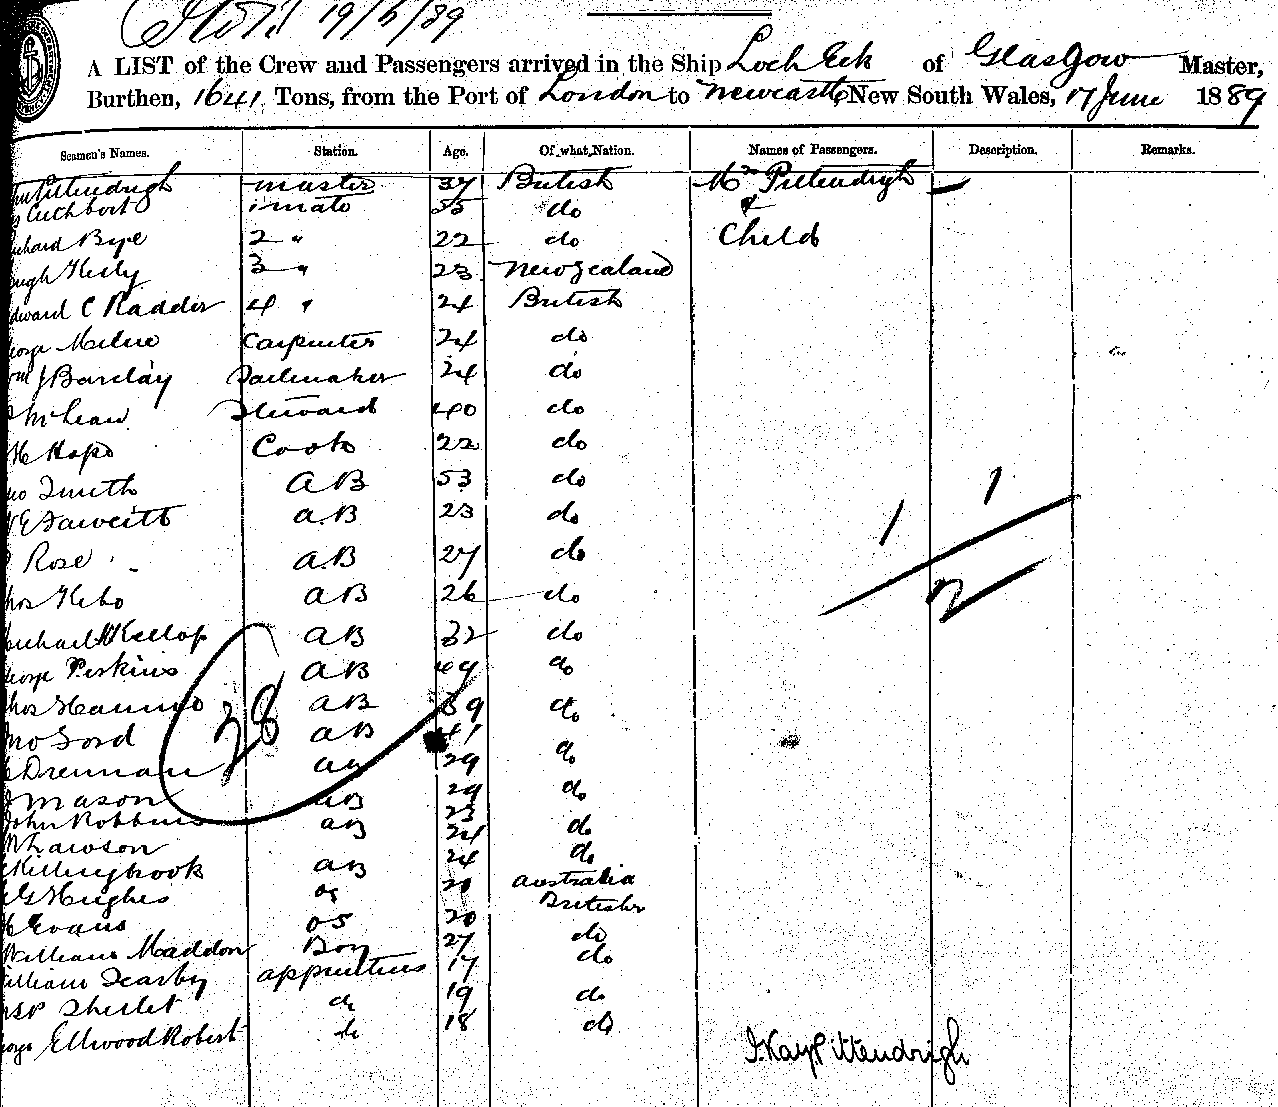 19/5/89
A LIST of the Crew and Passengers arrived in the Ship Loch Eck of Glasgow Master,
Burthen, 1641 Tons, from the Port of London to Newcastle New South Wales, 17 June 1889
Seamen's Names. Station. Age. Of what Nation. Names of Passengers. Description. Remarks.
Pittendrigh master 37 British Mrs Pittendrigh
Cuthbert 1 mate 55 do &
Bye 2 " 22 do Child
3 " 23 New Zealand
dward C Radder 4 " 24 British
eorge Milne Carpenter 24 do
J Barclay Sailmaker 24 do
McLean Steward 40 do
H Hope Cook 22 do
Smith AB 53 do 1
E Fawcitt A.B 23 do 1
Rose AB 27 do
AB 26 do 2
AB 32 do
eorge Perkins AB 49 do
AB 39 do
28
Ford AB 41 do
Drennan AB 29 do
Mason AB 29 do
John Robbins AB 23 do
Lawson 24 do
Killingbrook AB 24
G Hughes OS 20 Australia
Evans OS 20 British
William Maddon Boy 27 do
illiam Dearby apprentices 17 do
19 do
Ellwood Robert do 18 do
J. Kay Pittendrigh